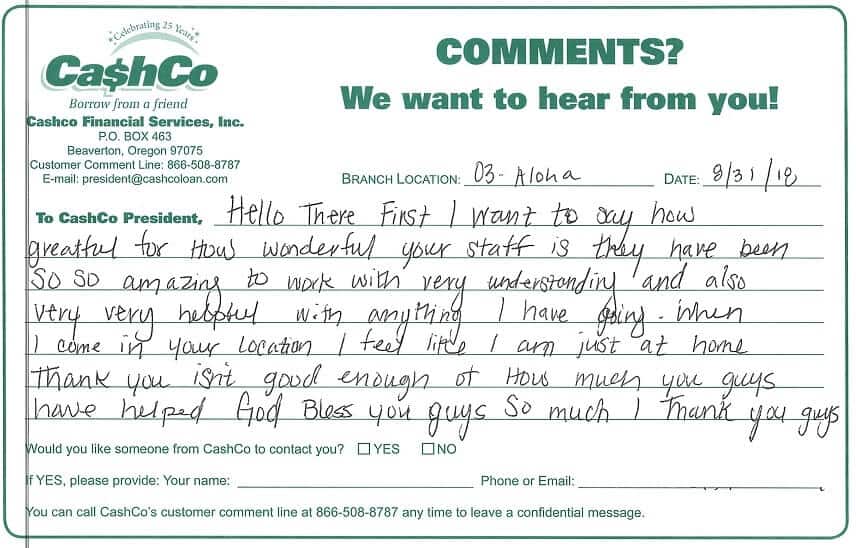 Celebrating 25 Years
Ca$hCo
Borrow from a friend
Cashco Financial Services, Inc.
P.O. BOX 463
Beaverton, Oregon 97075
Customer Comment Line: 866-508-8787
E-mail: president@cashcoloan.com
COMMENTS?
We want to hear from you!
BRANCH LOCATION: 03-Aloha DATE: 8/31/18
To CashCo President, Hello There First I want to say how
greatful for How wonderful your staff is they have been
So so amazing to work with very understanding and also
very very helpful with anything I have going. When
I come in your location I feel like I am just at home
Thank you isn't good enough of How much you guys
have helped God Bless you guys So much I Thank you guys
Would you like someone from CashCo to contact you? ☐ YES ☐ NO
If YES, please provide: Your name: Phone or Email:
You can call CashCo's customer comment line at 866-508-8787 any time to leave a confidential message.